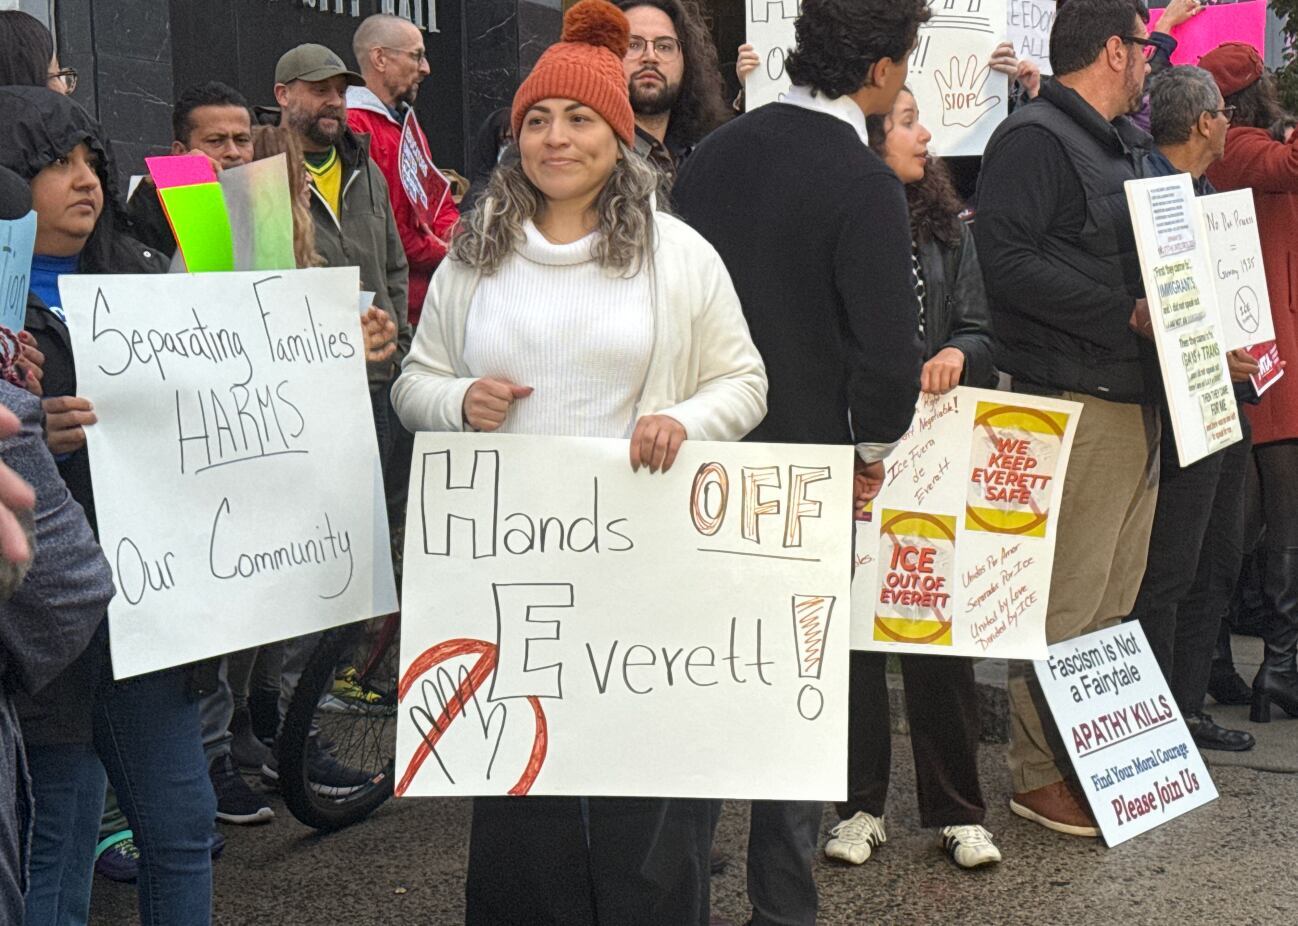 CITY HALL
OFF
!!
STOP
FREEDOM
ALL
Separating Families
HARMS
Our Community
Hands OFF
Everett!
Negotiable!
Ice Fuera
de
Everett
WE
KEEP
EVERETT
SAFE
ICE
OUT OF
EVERETT
Unidos Por Amor
Separados Por Ice
United by Love
Divided by ICE
First they came for
IMMIGRANTS
and I did not speak out
Then they came for
GAYS + TRANS
THEN THEY CAME
FOR ME
No Due Process
=
Germany 1935
ICE
Fascism is Not
a Fairytale
APATHY KILLS
Find Your Moral Courage
Please Join Us